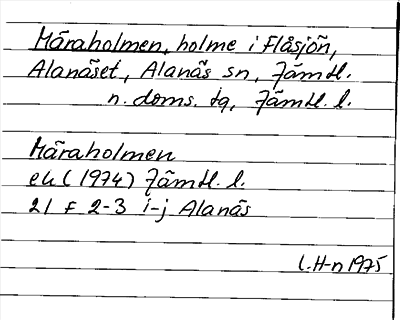 Märaholmen, holme i Flåsjön,
Alanäset, Alanäs sn, Jämtl.
n. doms. tq, Jämtl. l.
Märaholmen
ek (1974) Jämtl. l.
21 F 2-3 i-j Alanäs
L.H-n 1975